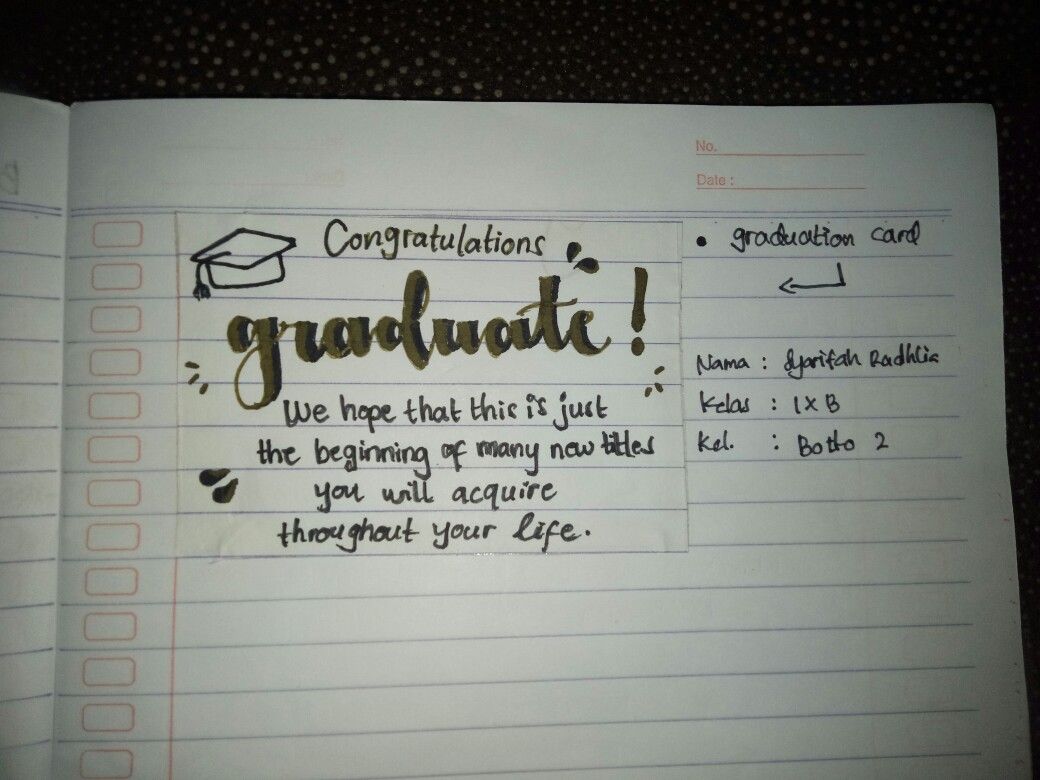 No.
Date :
Congratulations
graduate!
We hope that this is just
the beginning of many new titles
you will acquire
throughout your life.
• graduation card
Nama : Syarifah Radhlia
Kelas : IX B
Kel. : Botto 2